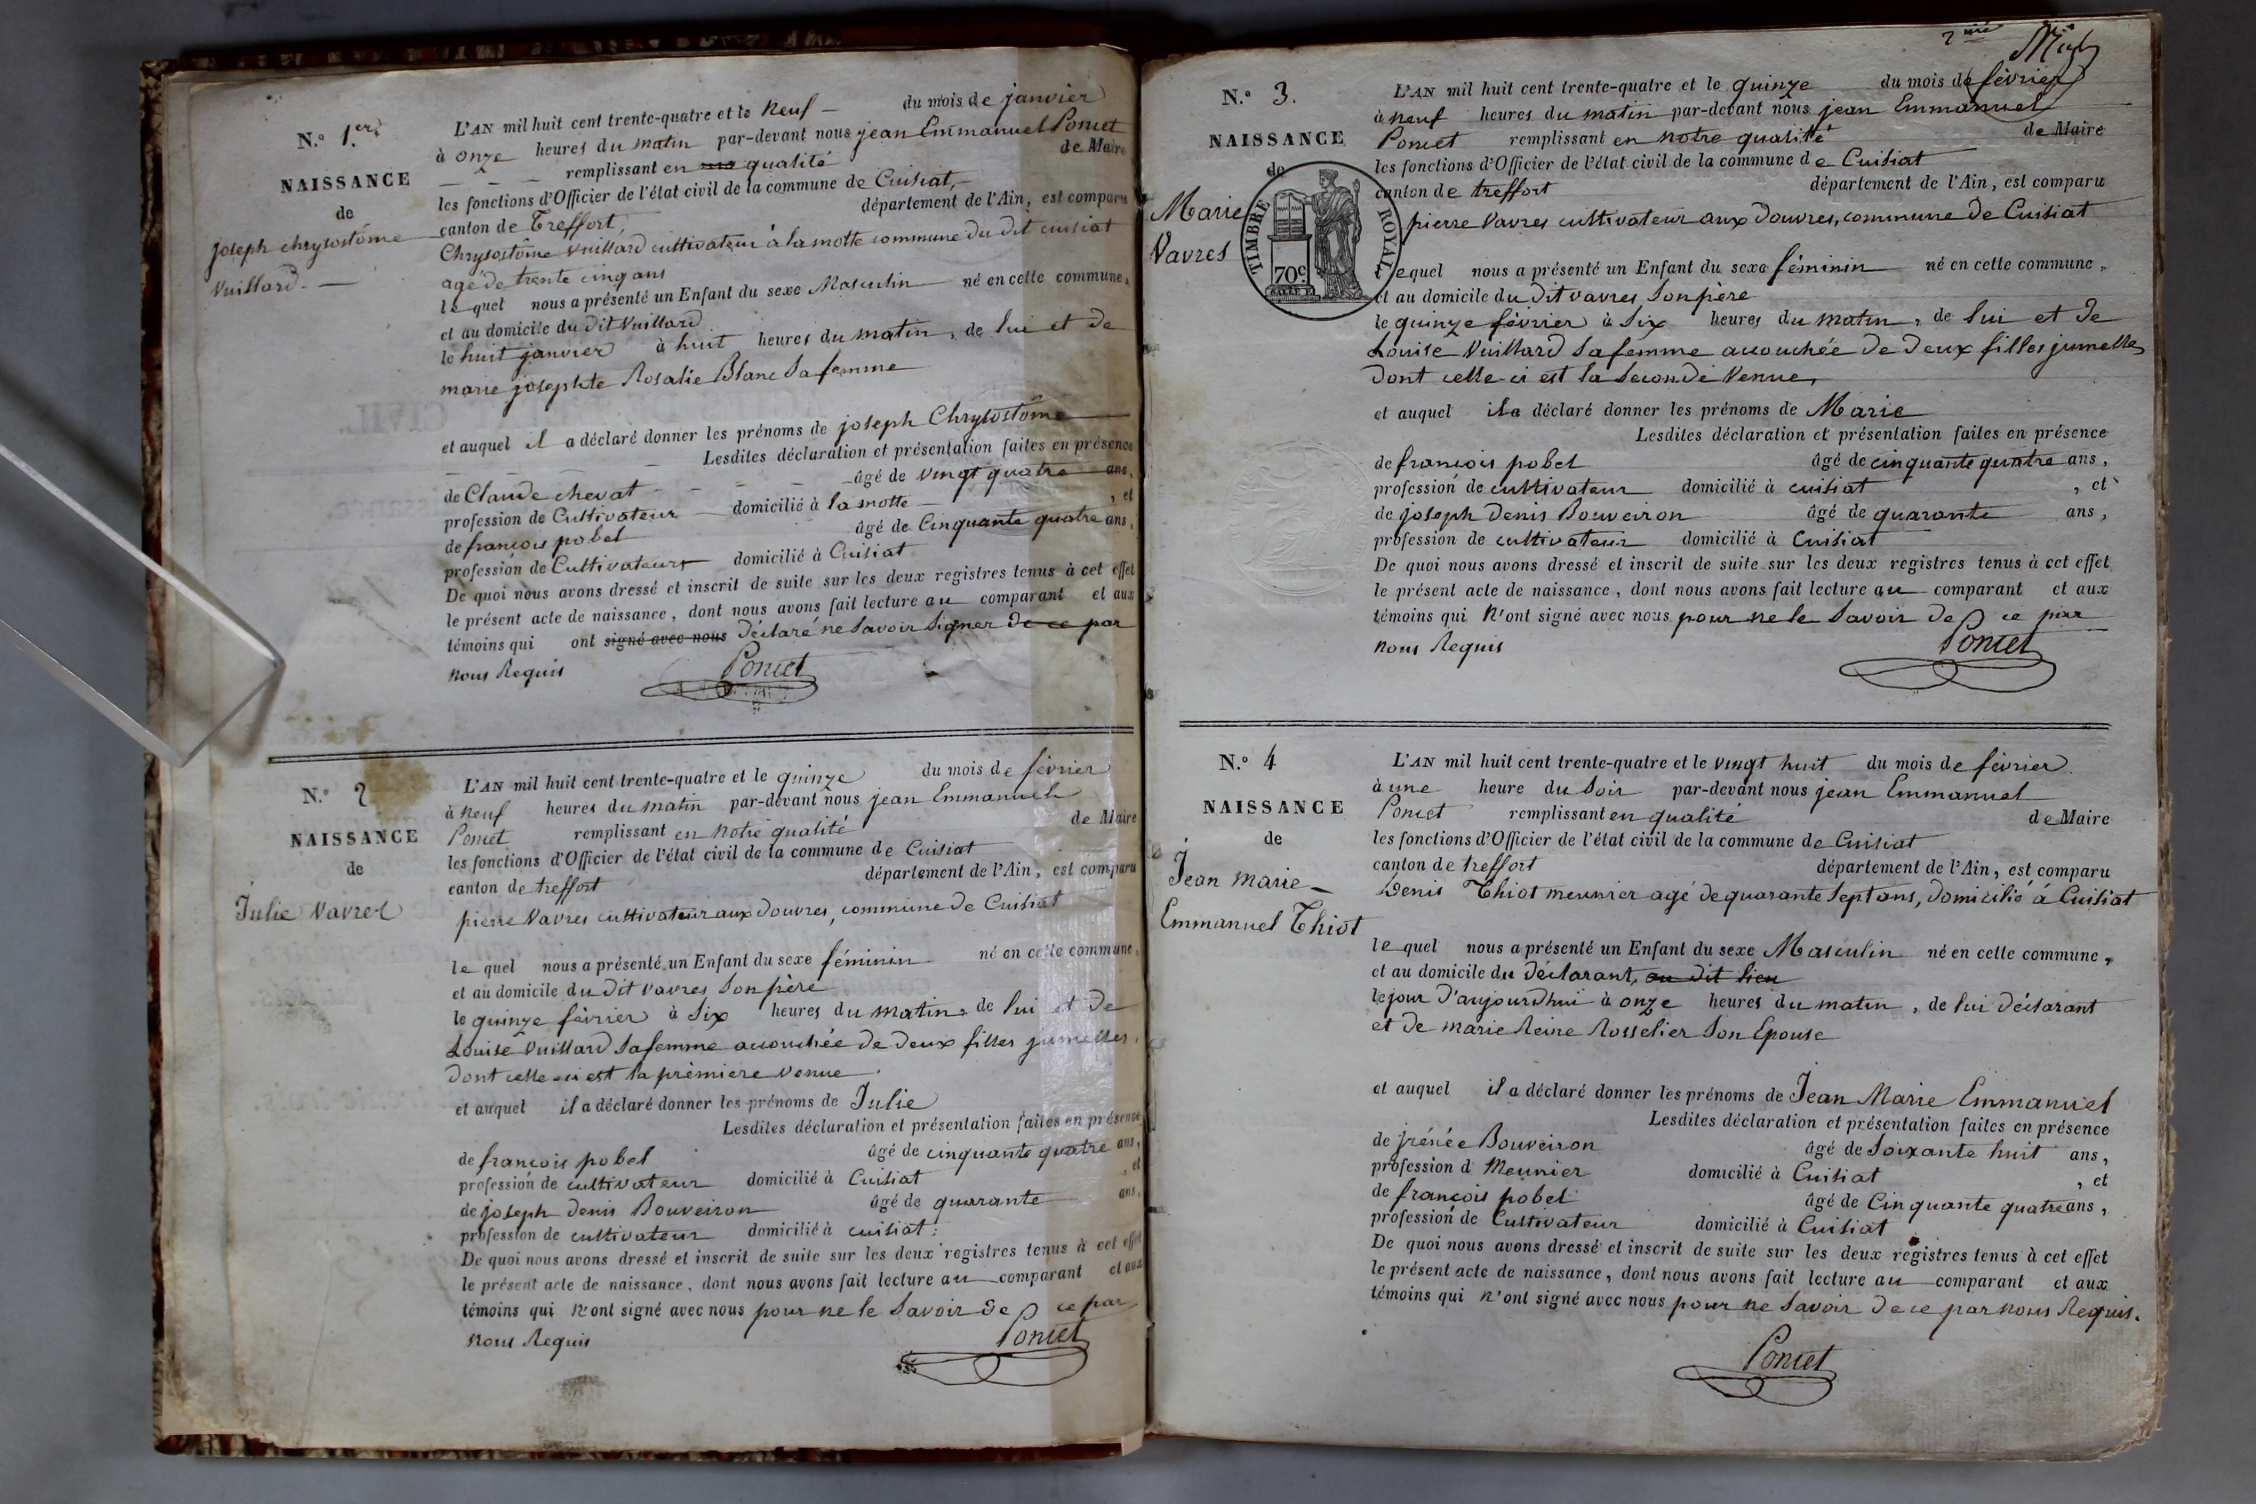 N.° 1er.
NAISSANCE
de
joseph chrysostôme
Vuillard. —
L'AN mil huit cent trente-quatre et le neuf — du mois de janvier
à onze heures du matin par-devant nous jean Emmanuel Poncet
remplissant en qualité de Maire
les fonctions d'Officier de l'état civil de la commune de Cuisiat,
canton de Treffort, département de l'Ain, est comparu
Chrysostôme Vuillard cultivateur à la motte commune du dit cuisiat
agé de trente cinq ans
le quel nous a présenté un Enfant du sexe Masculin né en cette commune,
et au domicile du dit Vuillard
le huit janvier à huit heures du matin, de lui et de
marie josephte Rosalie Blanc sa femme
et auquel il a déclaré donner les prénoms de joseph Chrysostôme
Lesdites déclaration et présentation faites en présence
de Claude chevat âgé de vingt quatre ans,
profession de Cultivateur domicilié à la motte , et
de françois pobel âgé de Cinquante quatre ans,
profession de Cultivateur domicilié à Cuisiat
De quoi nous avons dressé et inscrit de suite sur les deux registres tenus à cet effet
le présent acte de naissance, dont nous avons fait lecture au comparant et aux
témoins qui ont signé avec nous déclaré ne savoir signer de ce par
nous Requis
Poncet
N.° 2
NAISSANCE
de
Julie Vavres
L'AN mil huit cent trente-quatre et le quinze du mois de février
à neuf heures du matin par-devant nous jean Emmanuel
Poncet remplissant en notre qualité de Maire
les fonctions d'Officier de l'état civil de la commune de Cuisiat
canton de treffort département de l'Ain, est comparu
pierre Vavres cultivateur aux douvres, commune de Cuisiat
le quel nous a présenté un Enfant du sexe féminin né en cette commune,
et au domicile du dit vavres son père
le quinze février à six heures du matin, de lui et de
Louise Vuillard sa femme accouchée de deux filles jumelles,
dont celle-ci est la première venue
et auquel il a déclaré donner les prénoms de Julie
Lesdites déclaration et présentation faites en présence
de françois pobel âgé de cinquante quatre ans,
profession de cultivateur domicilié à Cuisiat , et
de joseph denis Bouveiron âgé de quarante ans,
profession de cultivateur domicilié à cuisiat:
De quoi nous avons dressé et inscrit de suite sur les deux registres tenus à cet effet
le présent acte de naissance, dont nous avons fait lecture au comparant et aux
témoins qui n'ont signé avec nous pour ne le savoir de ce par
nous Requis
Poncet
2me
N.° 3.
NAISSANCE
de
Marie
Vavres
TIMBRE ROYAL
70c
L'AN mil huit cent trente-quatre et le quinze du mois de février
à neuf heures du matin par-devant nous jean Emmanuel
Poncet remplissant en notre qualité de Maire
les fonctions d'Officier de l'état civil de la commune de Cuisiat
canton de treffort département de l'Ain, est comparu
pierre Vavres cultivateur aux douvres, commune de Cuisiat
lequel nous a présenté un Enfant du sexe féminin né en cette commune,
et au domicile du dit vavres son père
le quinze février à six heures du matin, de lui et de
Louise Vuillard sa femme accouchée de deux filles jumelles
dont celle-ci est la seconde venue,
et auquel il a déclaré donner les prénoms de Marie
Lesdites déclaration et présentation faites en présence
de françois pobel âgé de cinquante quatre ans,
profession de cultivateur domicilié à cuisiat , et
de joseph denis Bouveiron âgé de quarante ans,
profession de cultivateur domicilié à Cuisiat
De quoi nous avons dressé et inscrit de suite sur les deux registres tenus à cet effet
le présent acte de naissance, dont nous avons fait lecture au comparant et aux
témoins qui n'ont signé avec nous pour ne le savoir de ce par
nous Requis
Poncet
N.° 4
NAISSANCE
de
Jean marie
Emmanuel Thiot
L'AN mil huit cent trente-quatre et le vingt huit du mois de février.
à une heure du soir par-devant nous jean Emmanuel
Poncet remplissant en qualité de Maire
les fonctions d'Officier de l'état civil de la commune de Cuisiat
canton de treffort département de l'Ain, est comparu
Denis Thiot meunier agé de quarante sept ans, domicilié à Cuisiat
le quel nous a présenté un Enfant du sexe Masculin né en cette commune,
et au domicile du déclarant, au dit lieu
le jour d'aujourdhui à onze heures du matin, de lui déclarant
et de marie Reine Rosselier son Epouse
et auquel il a déclaré donner les prénoms de Jean Marie Emmanuel
Lesdites déclaration et présentation faites en présence
de jrénée Bouveiron âgé de soixante huit ans,
profession d Meunier domicilié à Cuisiat , et
de françois pobel âgé de Cinquante quatre ans,
profession de Cultivateur domicilié à Cuisiat
De quoi nous avons dressé et inscrit de suite sur les deux registres tenus à cet effet
le présent acte de naissance, dont nous avons fait lecture au comparant et aux
témoins qui n'ont signé avec nous pour ne savoir de ce par nous Requis.
Poncet